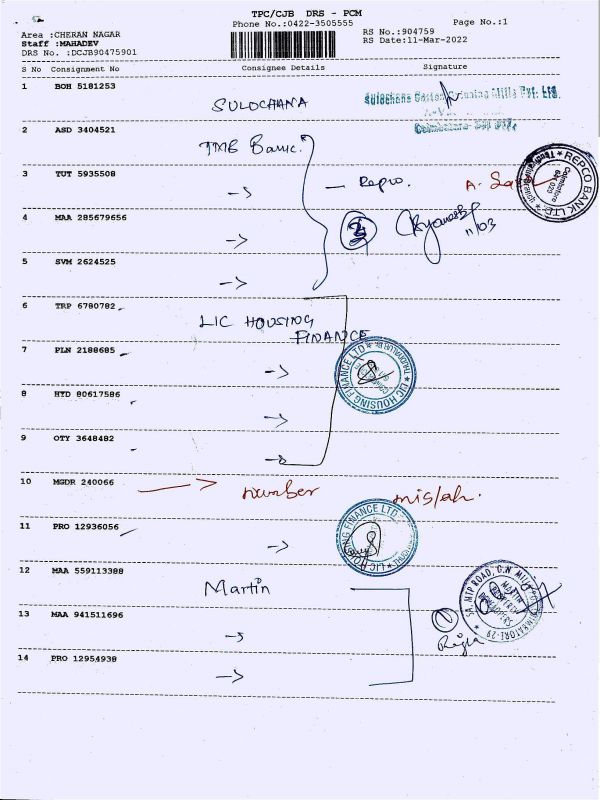 TPC/CJB DRS - PCM
Phone No.:0422-3505555
Page No.:1
Area :CHERAN NAGAR
RS No.:904759
Staff :MAHADEV
RS Date:11-Mar-2022
DRS No. :DCJB90475901
S No Consignment No Consignee Details Signature
1 BOH 5181253
SULOCHANA
Sulochana Cotton Spinning Mills Pvt. Ltd.
Coimbatore
2 ASD 3404521
TMB Banc.
3 TUT 5935508
→ — Repco.
REPCO BANK LTD
4 MAA 285679656
→
11/03
5 SVM 2624525
→
6 TRP 6780782
LIC HOUSING
FINANCE
7 PLN 2188685
→
LIC HOUSING FINANCE LTD
8 HTD 80617586
→
9 OTY 3648482
→
10 MGDR 240066 → number mistah.
11 PRO 12936056
→
LIC HOUSING FINANCE LTD
12 MAA 559113388
Martin
13 MAA 941511696
→
14 PRO 12954938
→